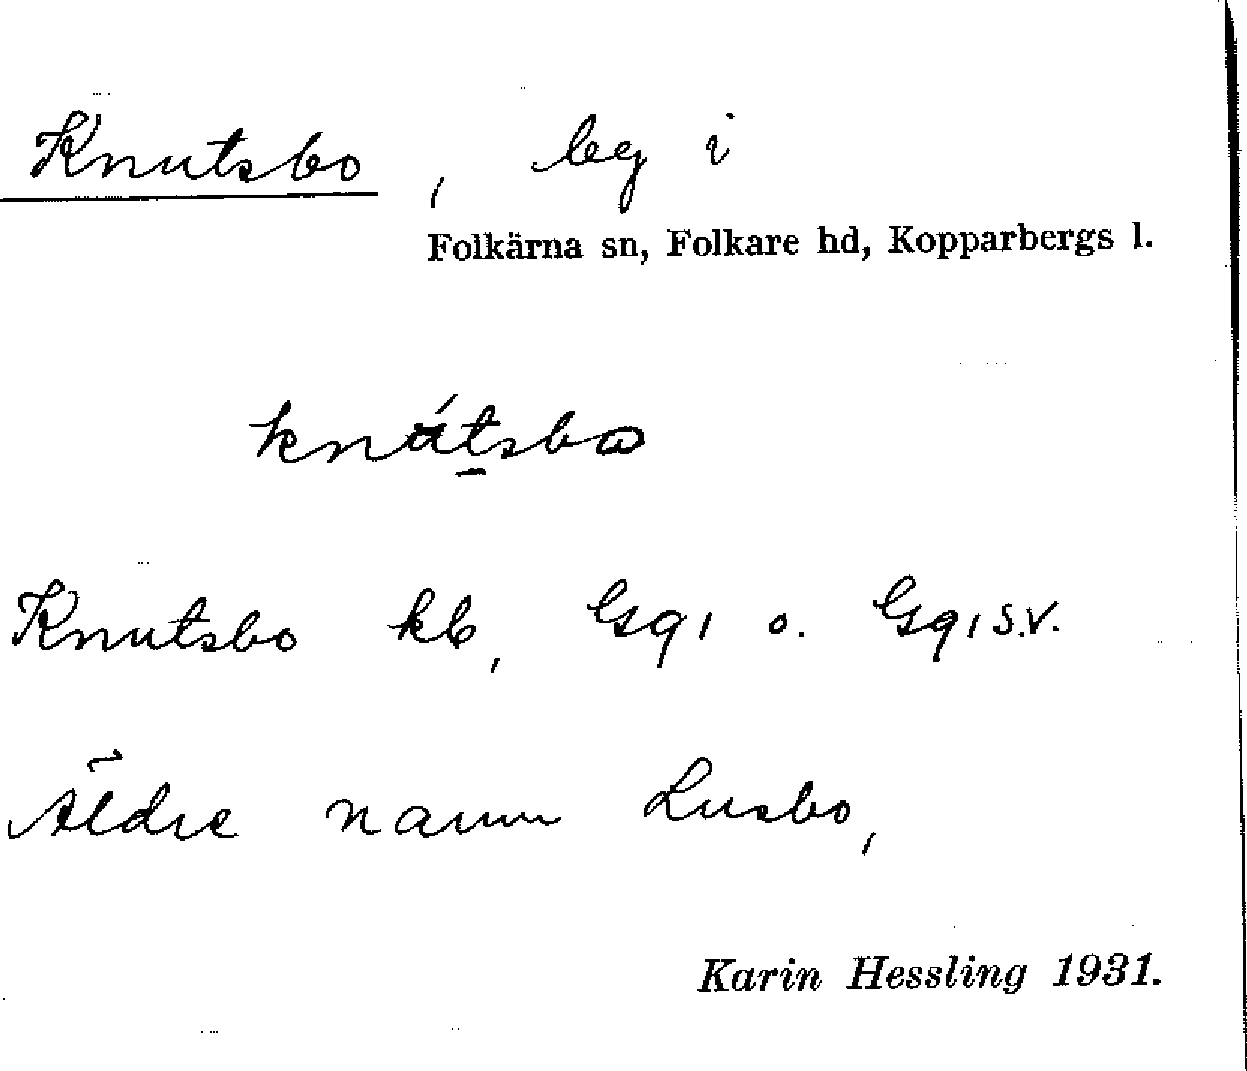 Knutsbo, beg i
Folkärna sn, Folkare hd, Kopparbergs l.
knu̇́tsbω
Knutsbo kb, Gsg1 o. Gsg1 S.V.
Äldre namn Lusbo,
Karin Hessling 1931.